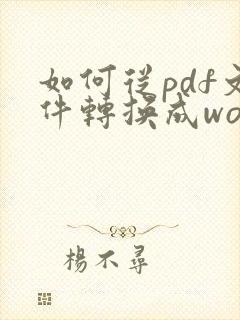 如何從pdf文
件轉換成wo
楊不尋